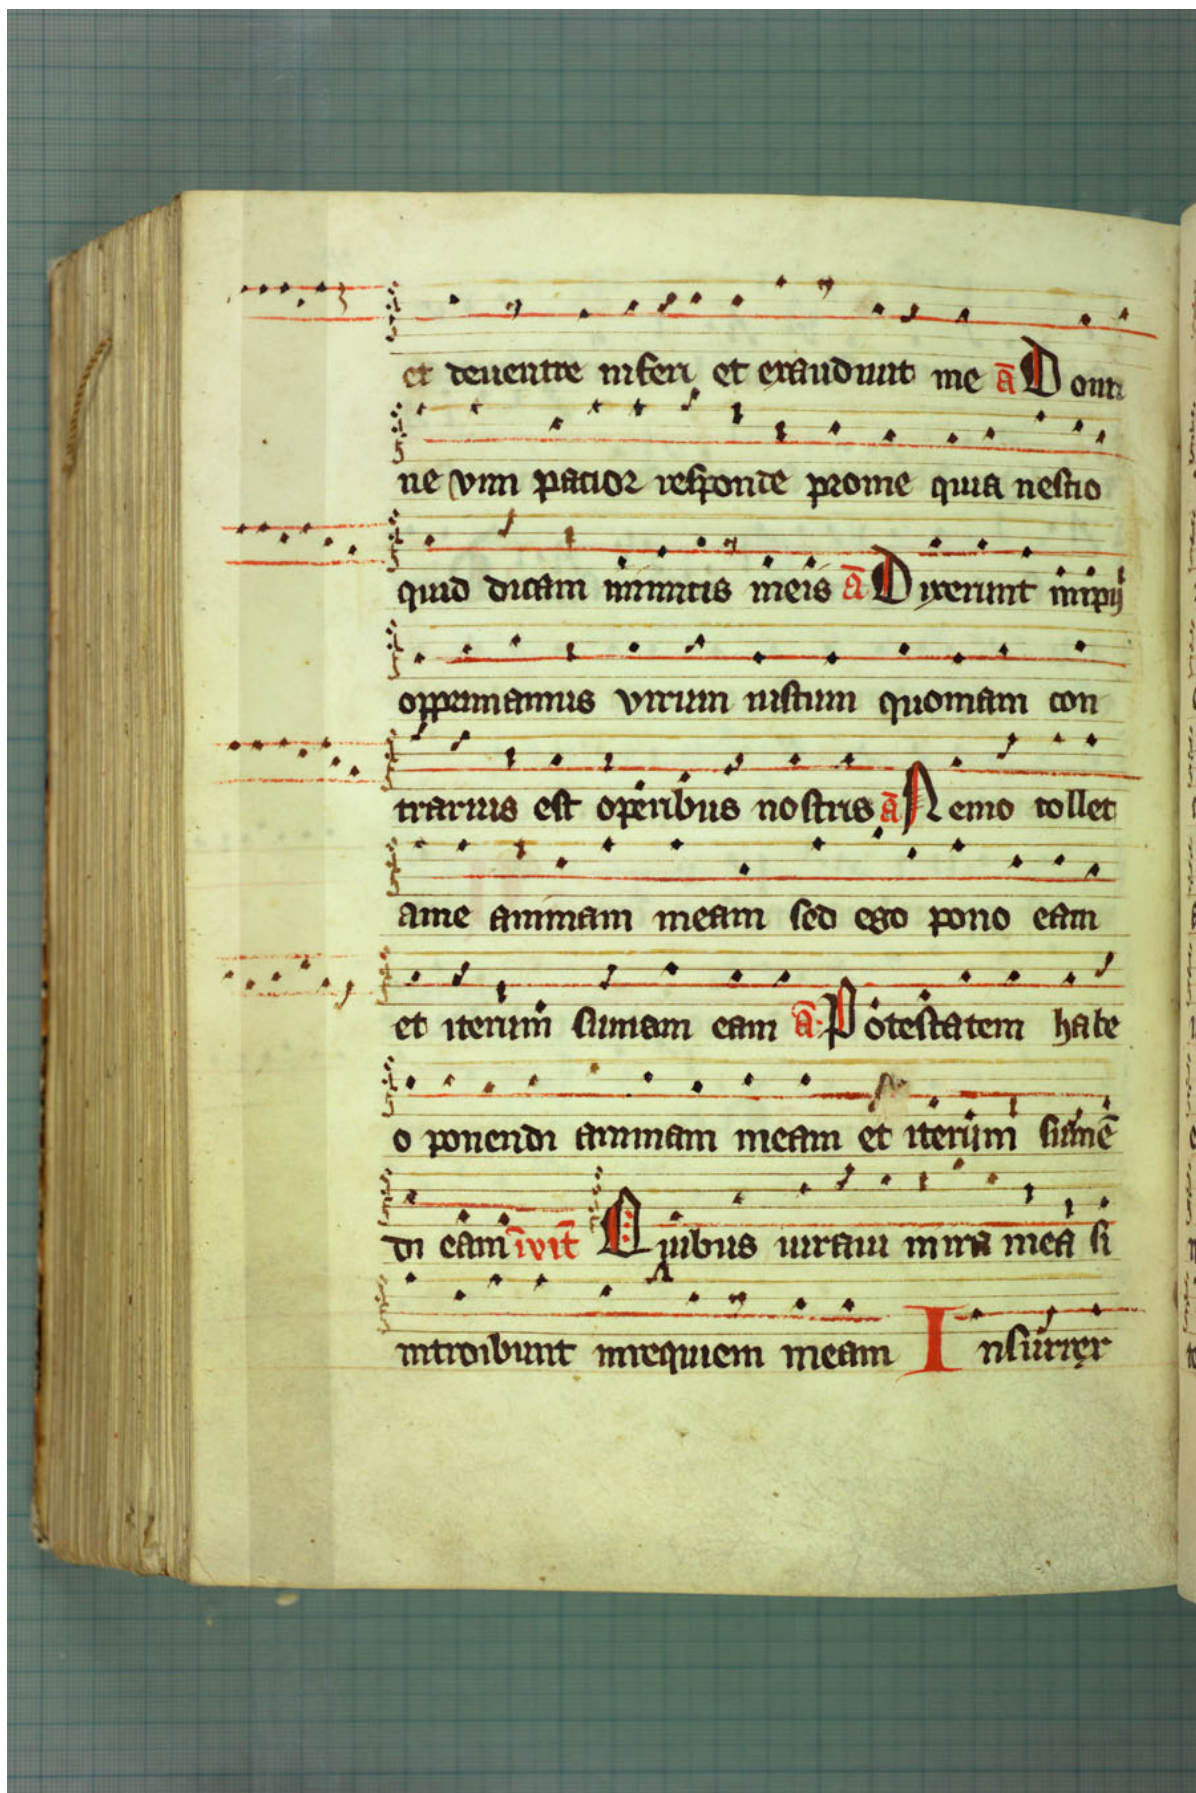 et deuentre inferi et exaudiuit me ā Domi
ne vim pacior responde prome quia nescio
quid dicam inimicis meis ā Dixerunt impij
opprimamus virum iustum quoniam con
trarius est operibus nostris ā Nemo tollet
ame animam meam sed ego pono eam
et iterum sumam eam ā Potestatem habe
o ponendi animam meam et iterum sumē
di eam īvit̄ Quibus iuraui in ira mea si
introibunt inrequiem meam Insurrex